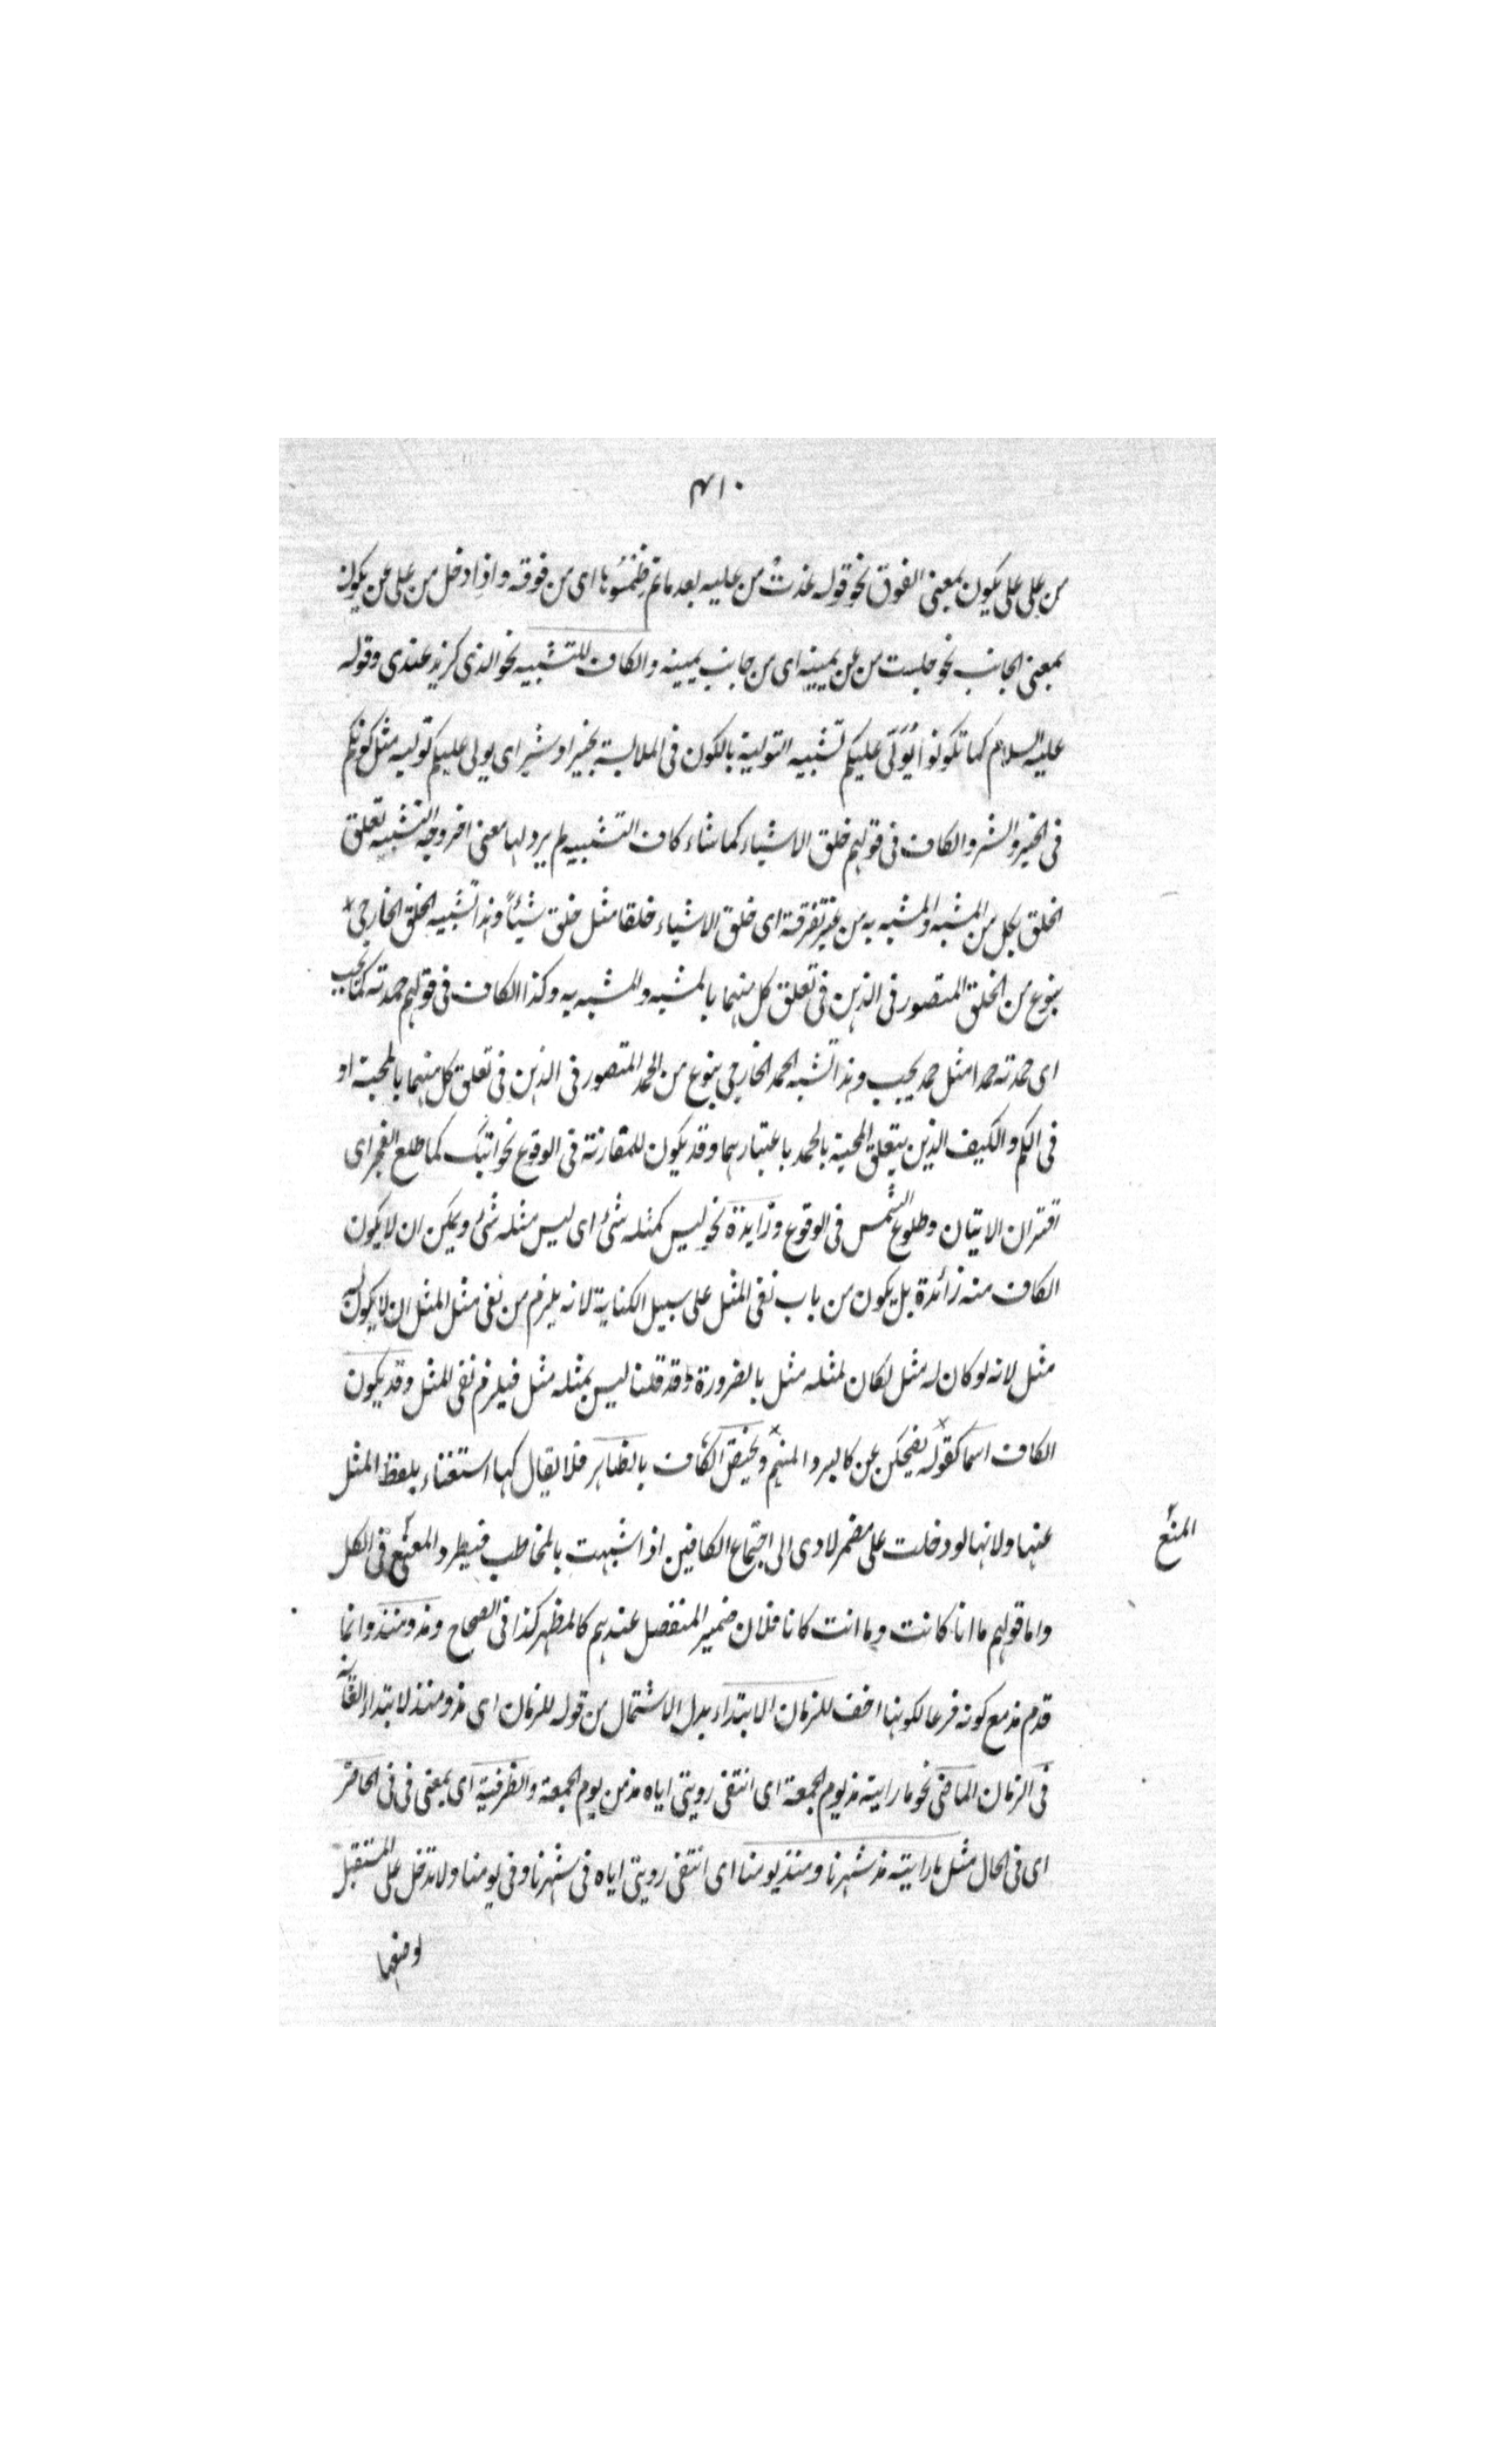 ٤١٠
من على على يكون بمعنى الفوق نحو قوله غدت من عليه بعد ماتم ظمئوها اى من فوقه واذا دخل من على عن يكون
بمعنى الجانب نحو جلست من عن يمينه اى من جانب يمينه والكاف للتشبيه نحو الذى كزيد عندى وقوله
عليه السلام كما تكونوا يُوَلّى عليكم تشبيه التولية بالكون فى الملابسة بخير او شر اى يولى عليكم تولية مثل كونكم
فى الخير والشر والكاف فى قولهم خلق الاشياء كما شاء كاف التشبيه لم يرد لها معنى اخر وجه التشبيه تعلق
الخلق بكل من المشبه والمشبه به من غير تفرقة اى خلق الاشياء خلقا مثل خلق شيئاً وهذا تشبيه الخلق الخارجى
بنوع من الخلق المتصور فى الذهن فى تعلق كل منهما بالمشبه والمشبه به وكذا الكاف فى قولهم حمدته كما يجب
اى حمدته حمدا مثل حمد يجب وهذا تشبه الحمد الخارجى بنوع من الحمد المتصور فى الذهن فى تعلق كل منهما بالمحبة او
فى الكم والكيف الذين يتعلق المحبة بالحمد باعتبارهما وقد يكون للمقارنة فى الوقوع نحو اتيتك كما طلع الفجر اى
اقتران الاتيان وطلوع الشمس فى الوقوع وزايدة نحو ليس كمثله شئ اى ليس مثله شئ ويمكن ان لا يكون
الكاف منه زائدة بل يكون من باب نفى المثل على سبيل الكناية لانه يلزم من نفى مثل المثل ان لا يكون له
مثل لانه لو كان له مثل لكان لمثله مثل بالضرورة وقد قلنا ليس بمثله مثل فيلزم نفى المثل وقد يكون
الكاف اسما كقوله يضحكن عن كالبرد المنهم ويختص الكاف بالظاهر فلا يقال كها استغناء بلفظ المثل
عنها ولانها لو دخلت على مضمر لادى الى اجتماع الكافين اذا شبهت بالمخاطب فيطرد المنع فى الكل
المنع
واما قولهم ما انا كانت وما انت كانا فلان ضمير المنفصل عندهم كالمظهر كذا فى الصحاح ومذ ومنذ وانما
قدم مذ مع كونه فرعا لكونها اخف للزمان الابتداء بدل الاشتمال من قوله للزمان اى مذ ومنذ لابتداء الغاية
فى الزمان الماضى نحو ما رايته مذ يوم الجمعة اى انتفى رويتى اياه مذ من يوم الجمعة والظرفية اى بمعنى فى فى الحاضر
اى فى الحال مثل ما رايته مذ شهرنا ومنذ يومنا اى انتفى رويتى اياه فى شهرنا وفى يومنا ولا تدخل على المستقبل